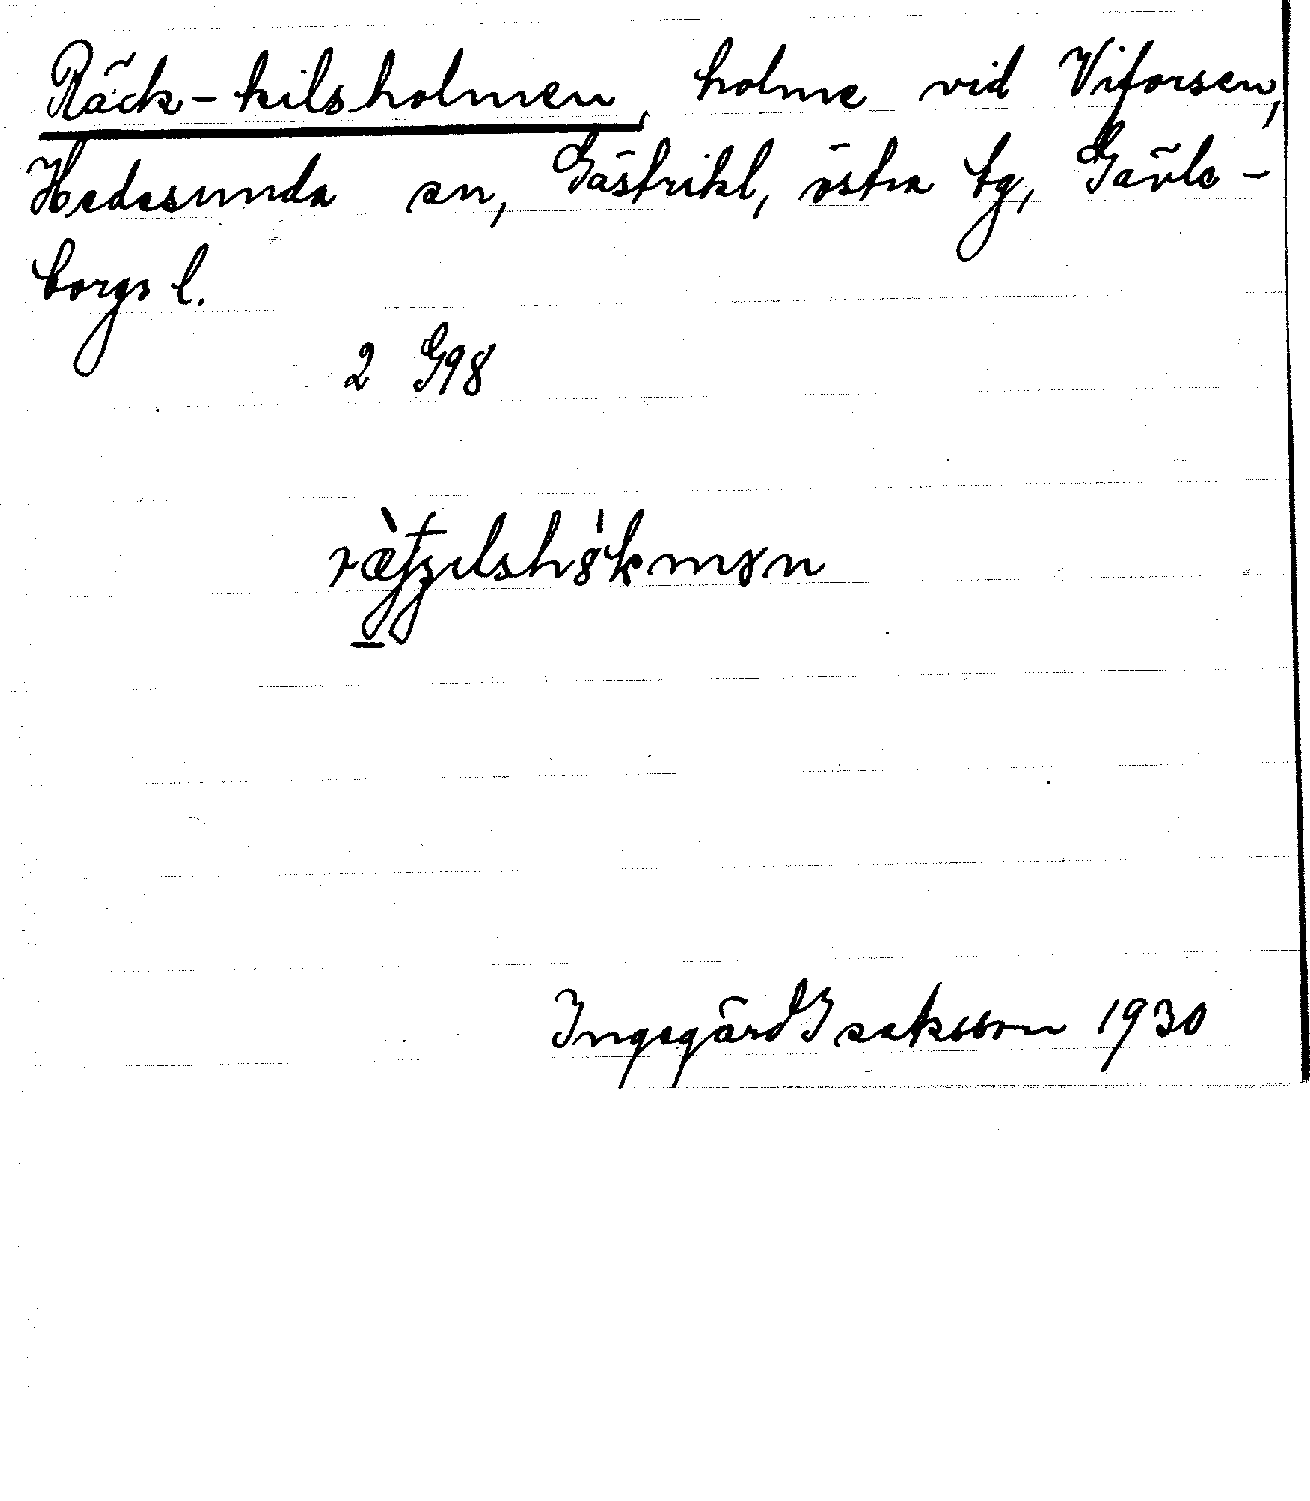 Räck-kilsholmen, holme vid Viforsen,
Hedesunda sn, Gästrikl, östra tg, Gävle-
borgs l.
2 G98
Ingegärd Isaksson 1930